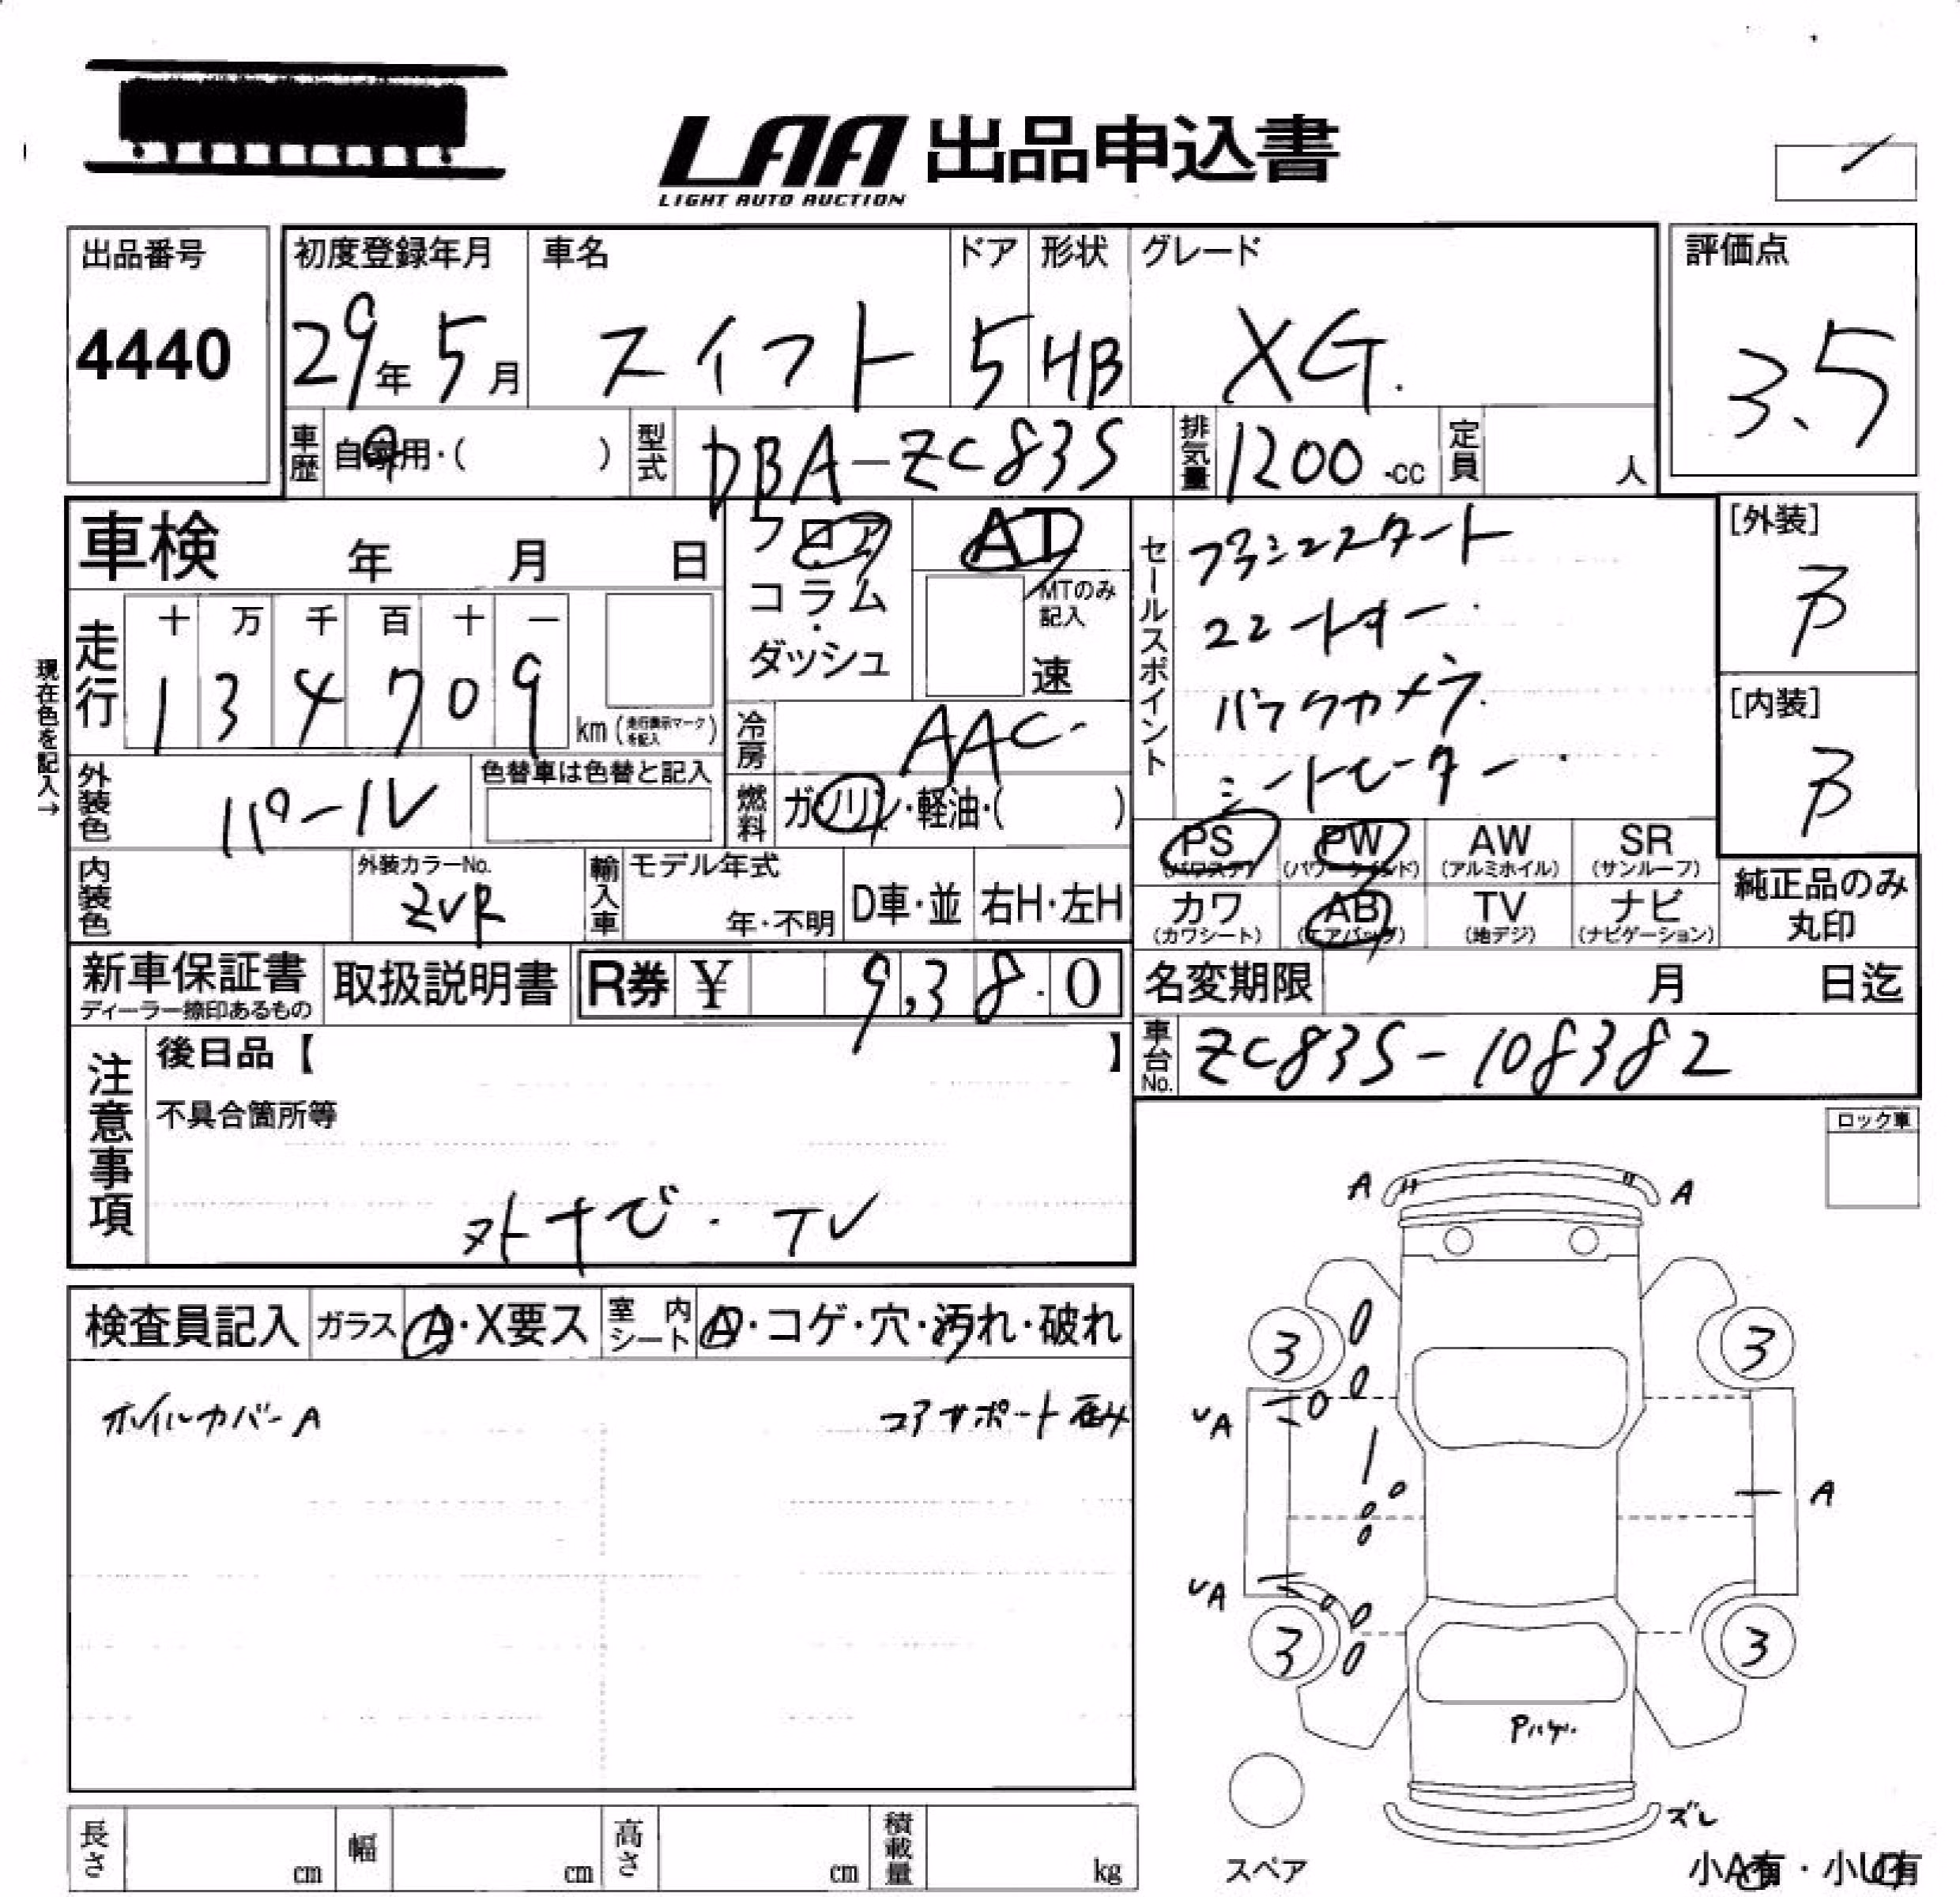 LAA 出品申込書
LIGHT AUTO AUCTION
出品番号
4440
初度登録年月
29年 5月
車名
スイフト
ドア
5
形状
HB
グレード
XG.
評価点
3.5
車歴
自家用・( )
型式
DBA-ZC83S
排気量
1200-cc
定員
人
車検 年 月 日
フロア
コラム
ダッシュ
AT
MTのみ
記入
速
セールスポイント
プッシュスタート
コーナー
バックカメラ
シートヒーター
[外装]
B
[内装]
B
現在色を記入→
走行
十 万 千 百 十 一
1 3 4 7 0 9
km (走行表示マークを記入)
冷房
AAC
外装色
パール
色替車は色替と記入
燃料
ガソリン・軽油・( )
PS
(パワステ)
PW
(パワーウインド)
AW
(アルミホイル)
SR
(サンルーフ)
内装色
外装カラーNo.
ZVR
輸入車
モデル年式
年・不明
D車・並
右H・左H
カワ
(カワシート)
AB
(エアバッグ)
TV
(地デジ)
ナビ
(ナビゲーション)
純正品のみ
丸印
新車保証書
ディーラー捺印あるもの
取扱説明書
R券 ¥ 9,380
名変期限 月 日迄
車台No.
ZC83S-108382
注意事項
後日品【 】
不具合箇所等
外ナビ・TV
ロック車
検査員記入
ガラス
A・X要ス
室内シート
A・コゲ・穴・汚れ・破れ
ホイルカバーA
コアサポート歪み
A A
3 3
A
A
A
3 3
Pハゲ
ズレ
スペア
小A有・小U有
長さ cm
幅 cm
高さ cm
積載量 kg